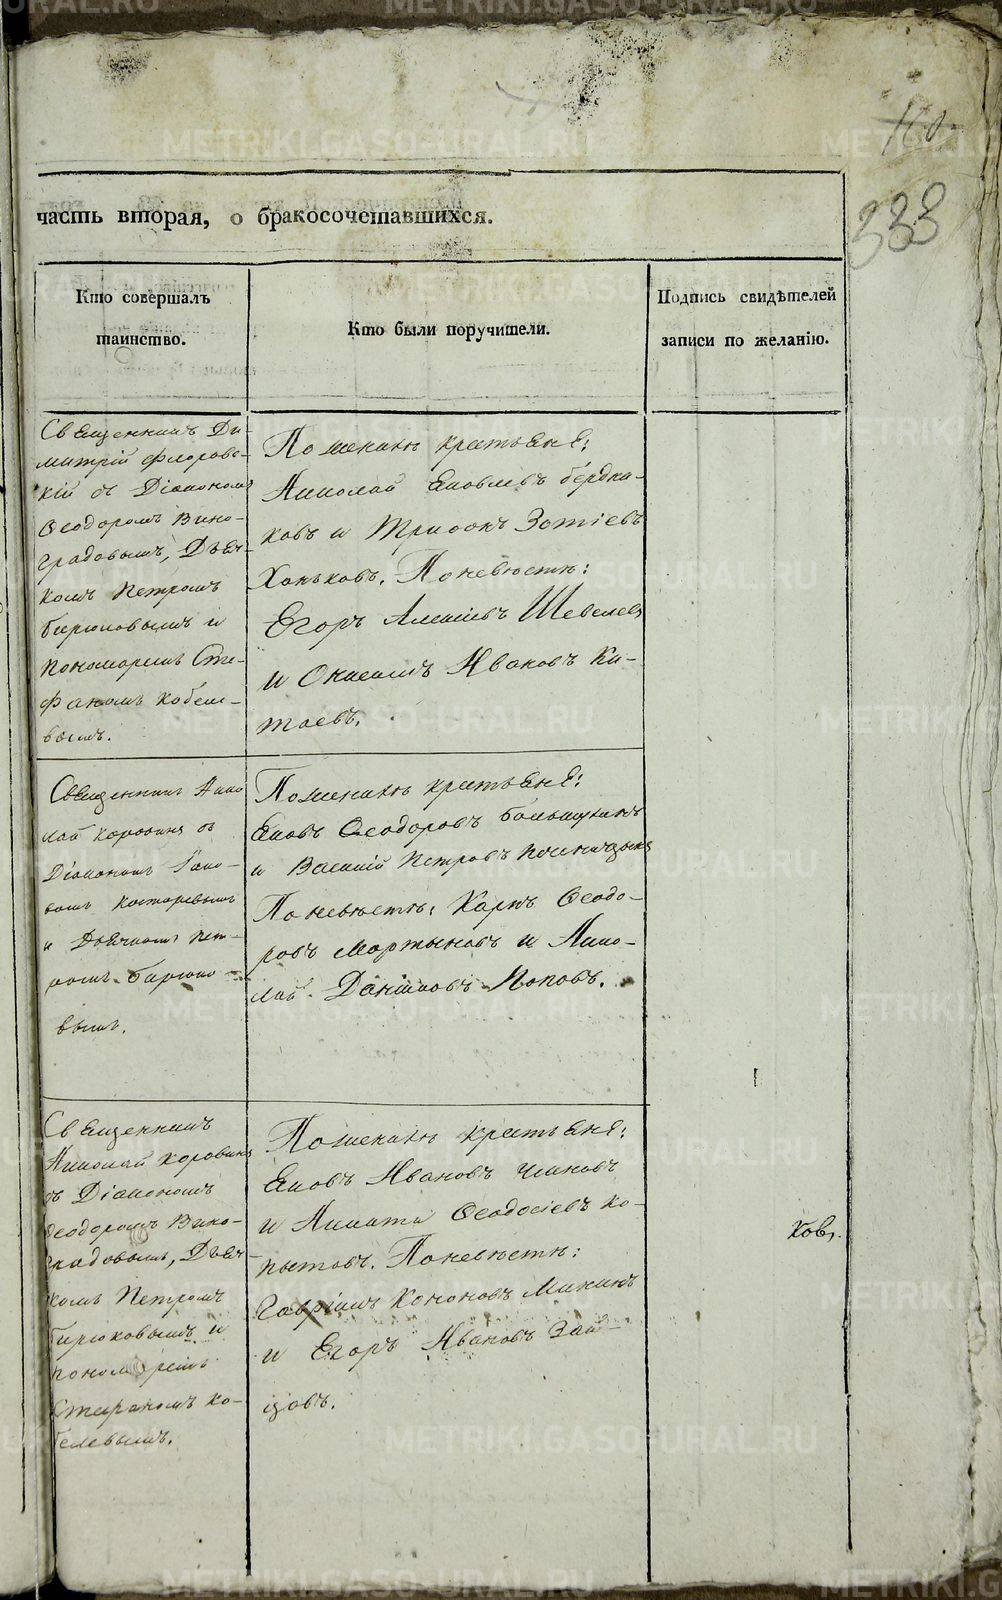 110.
333
часть вторая, о бракосочетавшихся.
Кто совершалъ
таинство.
Кто были поручители.
Подпись свидѣтелей
записи по желанію.
Священникъ Ди-
митрій Флоровс-
кій съ Діакономъ
Ѳеодоромъ Вино-
градовымъ, Дьяч-
комъ Петромъ
Бирюковымъ и
пономаремъ Сте-
фаномъ Кобеле-
вымъ.
По женихѣ крестьяне:
Николай Яковлевъ Бердни-
ковъ и Трифонъ Зотіевъ
Хоньковъ. По невѣстѣ:
Егоръ Алексѣевъ Шевелевъ
и Онисимъ Ивановъ Ки-
таевъ.
Священникъ Нико
лай Коровинъ съ
Діакономъ
Костаревымъ
и Дьячкомъ Пет-
ромъ Бирюко-
вымъ.
По женихѣ крестьяне:
Яковъ Ѳеодоровъ
и Василій Петровъ
По невѣстѣ: Карпъ Ѳеодо-
ровъ Мартыновъ и Нико-
лай Даниловъ Поповъ.
Священникъ
Николай Коровинъ
съ Діакономъ
Ѳеодоромъ Вино-
градовымъ, Дьяч-
комъ Петромъ
Бирюковымъ и
пономаремъ
Стефаномъ Ко-
белевымъ.
По женихѣ крестьяне:
Яковъ Ивановъ
и Никита Ѳеодосіевъ Ко-
пытовъ. По невѣстѣ:
Гавріилъ Кононовъ Мининъ
и Егоръ Ивановъ Зай-
цовъ.
Ковъ.
METRIKI.GASO-URAL.RU